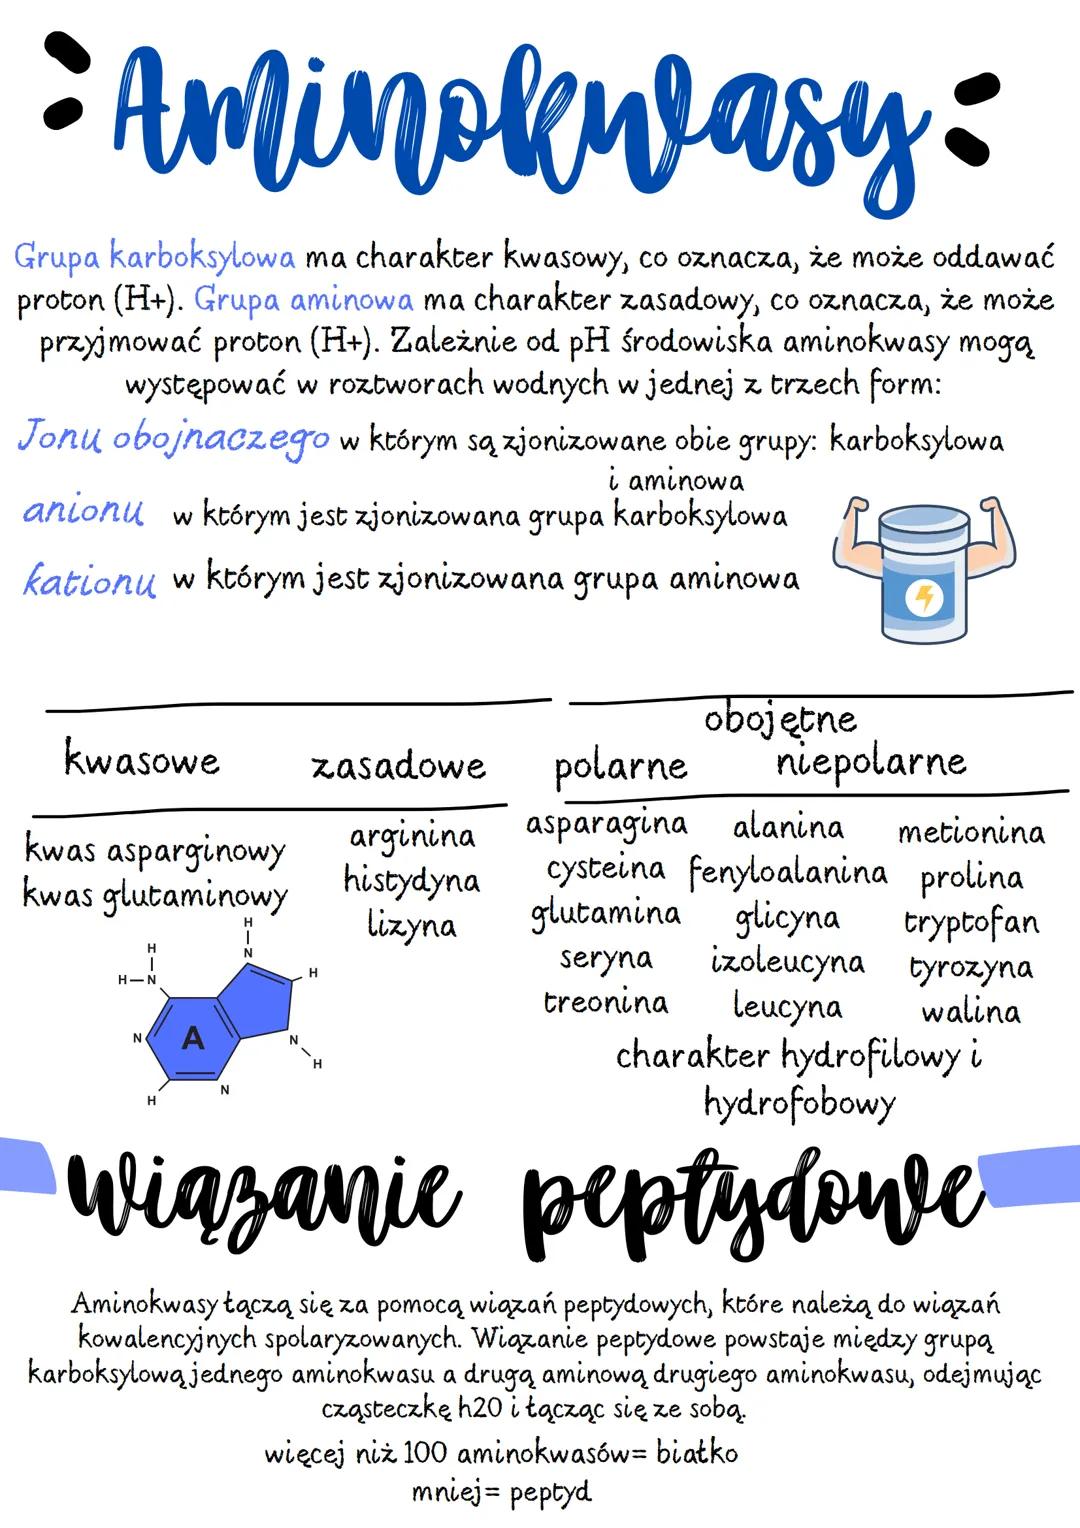 Aminokwasy
Grupa karboksylowa ma charakter kwasowy, co oznacza, że może oddawać
proton (H+). Grupa aminowa ma charakter zasadowy, co oznacza, że może
przyjmować proton (H+). Zależnie od pH środowiska aminokwasy mogą
występować w roztworach wodnych w jednej z trzech form:
Jonu obojnaczego w którym są zjonizowane obie grupy: karboksylowa
i aminowa
anionu w którym jest zjonizowana grupa karboksylowa
kationu w którym jest zjonizowana grupa aminowa
obojętne
kwasowe zasadowe polarne niepolarne
kwas asparginowy arginina asparagina alanina metionina
kwas glutaminowy histydyna cysteina fenyloalanina prolina
lizyna glutamina glicyna tryptofan
seryna izoleucyna tyrozyna
treonina leucyna walina
H
H
N
H—N
H
N
A
N
H
N
H
charakter hydrofilowy i
hydrofobowy
wiązanie peptydowe
Aminokwasy łączą się za pomocą wiązań peptydowych, które należą do wiązań
kowalencyjnych spolaryzowanych. Wiązanie peptydowe powstaje między grupą
karboksylową jednego aminokwasu a drugą aminową drugiego aminokwasu, odejmując
cząsteczkę h20 i łącząc się ze sobą.
więcej niż 100 aminokwasów= białko
mniej= peptyd